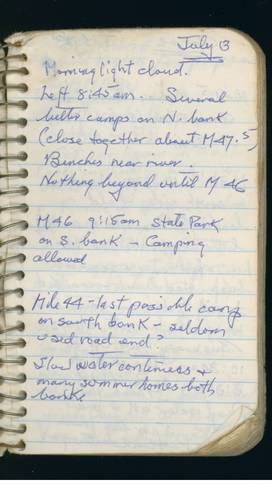 July 13
Morning light cloud.
Left 8:45am. Several
little camps on N. bank
(close together about M47.5)
Benches near river.
Nothing beyond until M 46
M46 9:15am State Park
on S. bank - Camping
allowed
Mile 44 - last possible camp
on south bank - seldom
used road end?
Slow water continues +
many summer homes both
banks